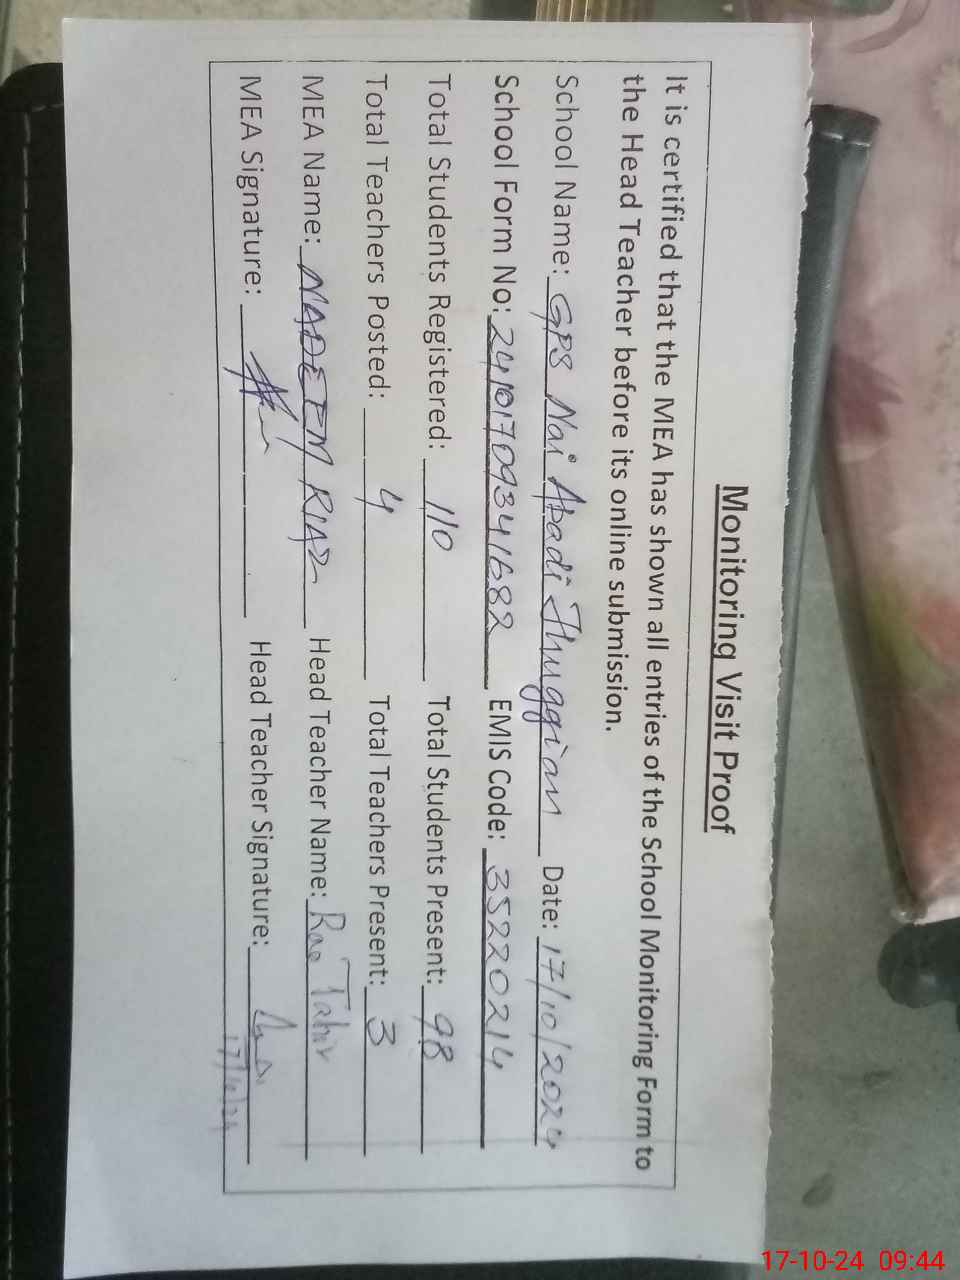 Monitoring Visit Proof
It is certified that the MEA has shown all entries of the School Monitoring Form to
the Head Teacher before its online submission.
School Name: GPS Nai Abadi Jhuggian Date: 17/10/2024
School Form No: 24101709341682 EMIS Code: 35220214
Total Students Registered: 110 Total Students Present: 98
Total Teachers Posted: 4 Total Teachers Present: 3
MEA Name: NADEEM RIAZ Head Teacher Name: Rao Tahir
MEA Signature: Head Teacher Signature:
17-10-24 09:44